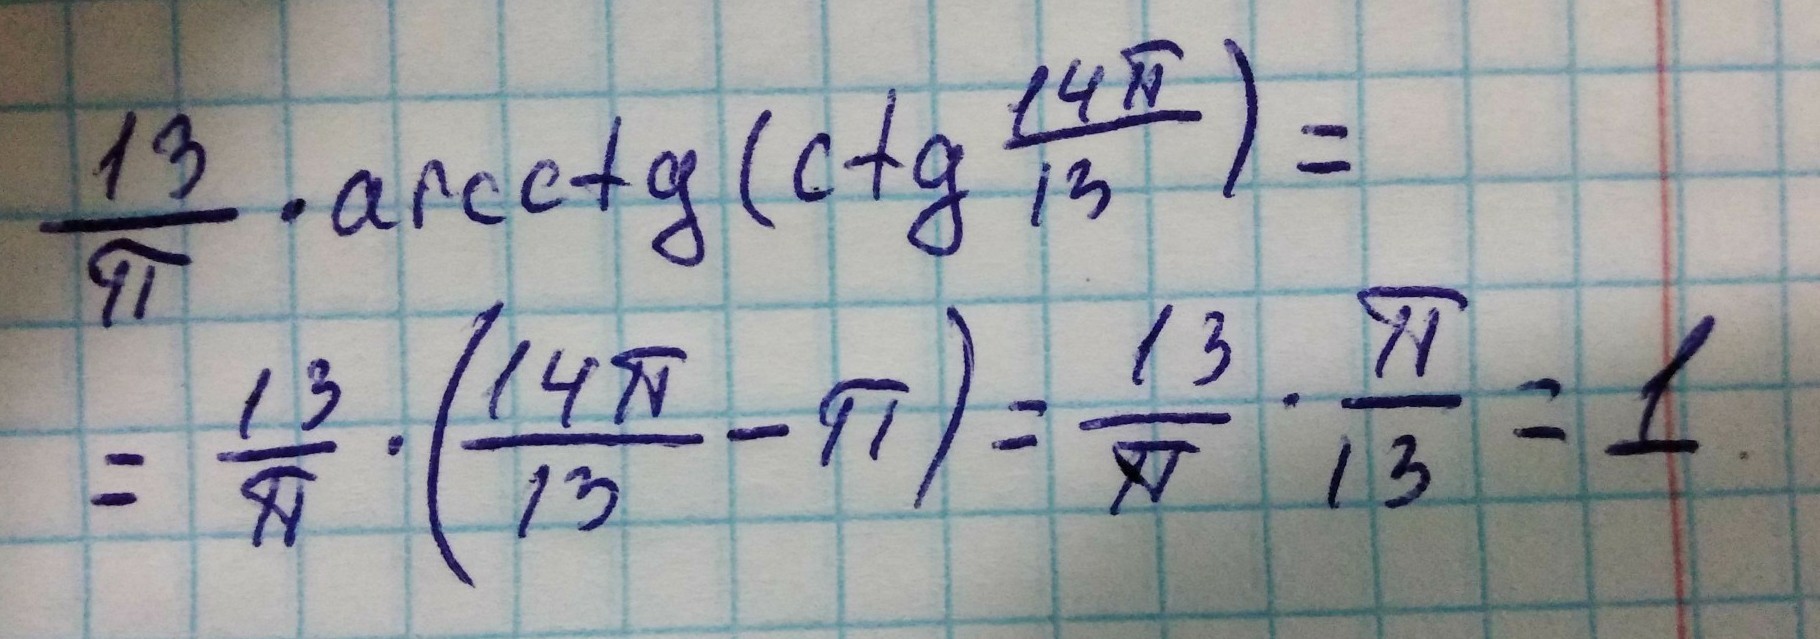 13/π · arcctg(ctg 14π/13) =
= 13/π · (14π/13 - π) = 13/π · π/13 = 1.